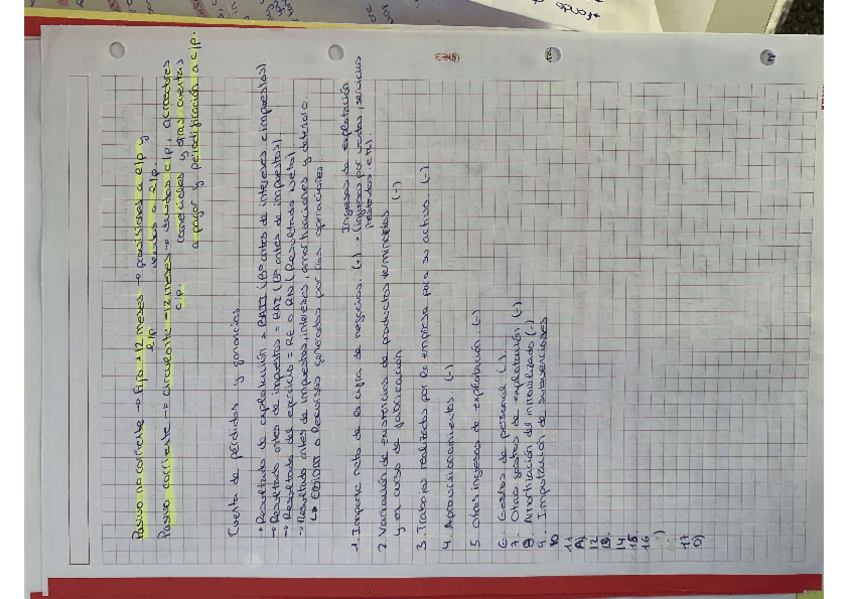 Pasivo no corriente → Fijo +12 meses → provisiones a l/p y
l/p deudas a l/p.
Pasivo corriente → circulante -12 meses → deudas c/p, acreedores
c/p. comerciales y otras cuentas
a pagar y periodificación a c/p.
Cuenta de pérdidas y ganancias
→ Resultado de explotación = BAII (Bº antes de intereses e impuestos)
→ Resultado antes de impuestos = BAI (Bº antes de impuestos).
→ Resultado del ejercicio = RE o RN (Resultado neto).
→ Resultado antes de impuestos, intereses, amortizaciones y deterioro.
↳ EBITDA o Recursos generados por las operaciones.
Ingresos de explotación
1. Importe neto de la cifra de negocios. (+) → (ingresos por ventas, servicios
prestados etc).
2. Variación de existencias de productos terminados
y en curso de fabricación (-)
3. Trabajos realizados por la empresa para su activo. (-)
4. Aprovisionamientos. (-)
5. Otros ingresos de explotación. (-)
6. Gastos de personal (-).
7. Otros gastos de explotación. (-)
8. Amortización del inmovilizado (-)
9. Imputación de subvenciones
10
11
A)
12
13.
14
15.
16
17
D)